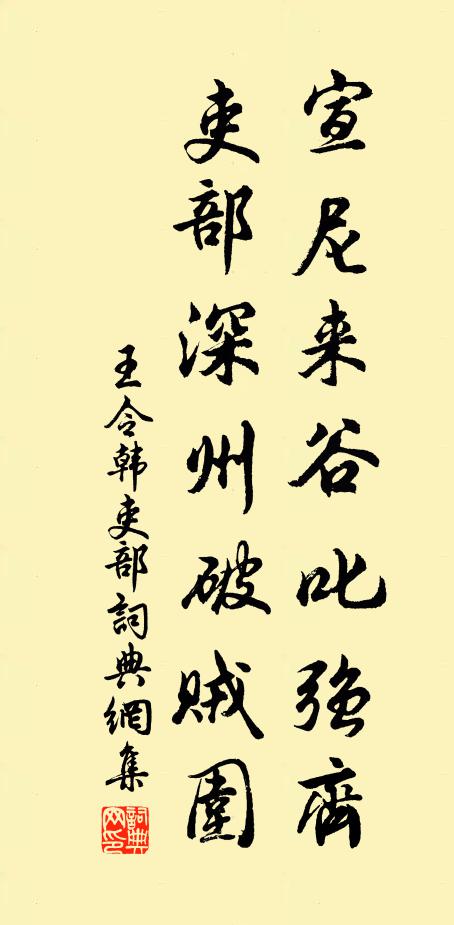 宣尼来谷叱强齊
吏部深州破贼圍
王令韩吏部詞典網集
詞典網印